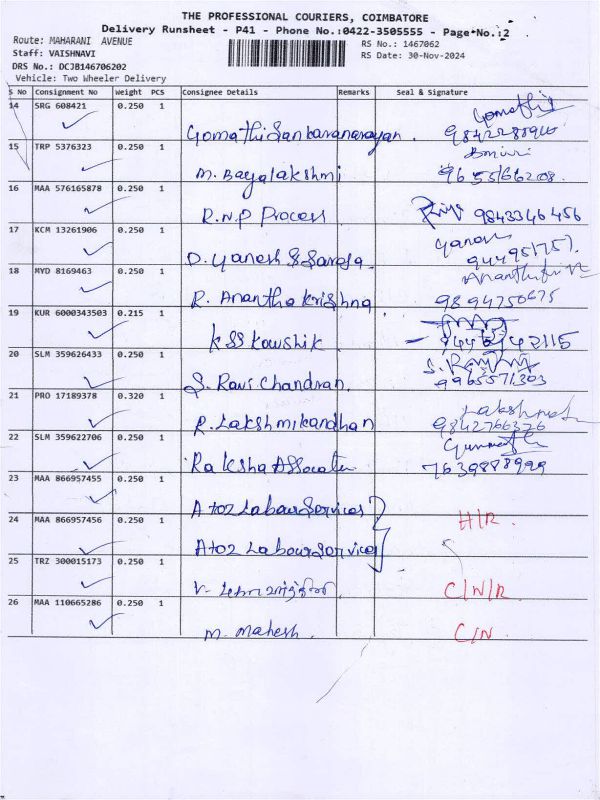 THE PROFESSIONAL COURIERS, COIMBATORE
Delivery Runsheet - P41 - Phone No.:0422-3505555 - Page No.:2
Route: MAHARANI AVENUE
RS No.: 1467062
Staff: VAISHNAVI
RS Date: 30-Nov-2024
DRS No.: DCJB146706202
Vehicle: Two Wheeler Delivery
S No Consignment No Weight PCS Consignee Details Remarks Seal & Signature
14 SRG 608421 0.250 1
Gomathi Sankaranarayan.
15 TRP 5376323 0.250 1
M. Bagyalakshmi 9655166208.
16 MAA 576165878 0.250 1
R.N.P Process 9843346456
17 KCM 13261906 0.250 1
D. Ganesh
18 MYD 8169463 0.250 1
R. Anantha Krishna 9894750675
19 KUR 6000343503 0.215 1
KSS Kowshik.
20 SLM 359626433 0.250 1
S. Ravi Chandran. 9965571303
21 PRO 17189378 0.320 1
R. Lakshmikandhan 9842766376
22 SLM 359622706 0.250 1
Raksha 7639888999
23 MAA 866957455 0.250 1
A to Z Labour Services
24 MAA 866957456 0.250 1
H/R.
A to Z Labour Services
25 TRZ 300015173 0.250 1
V. C/N/R
26 MAA 110665286 0.250 1
M. Mahesh. C/N.